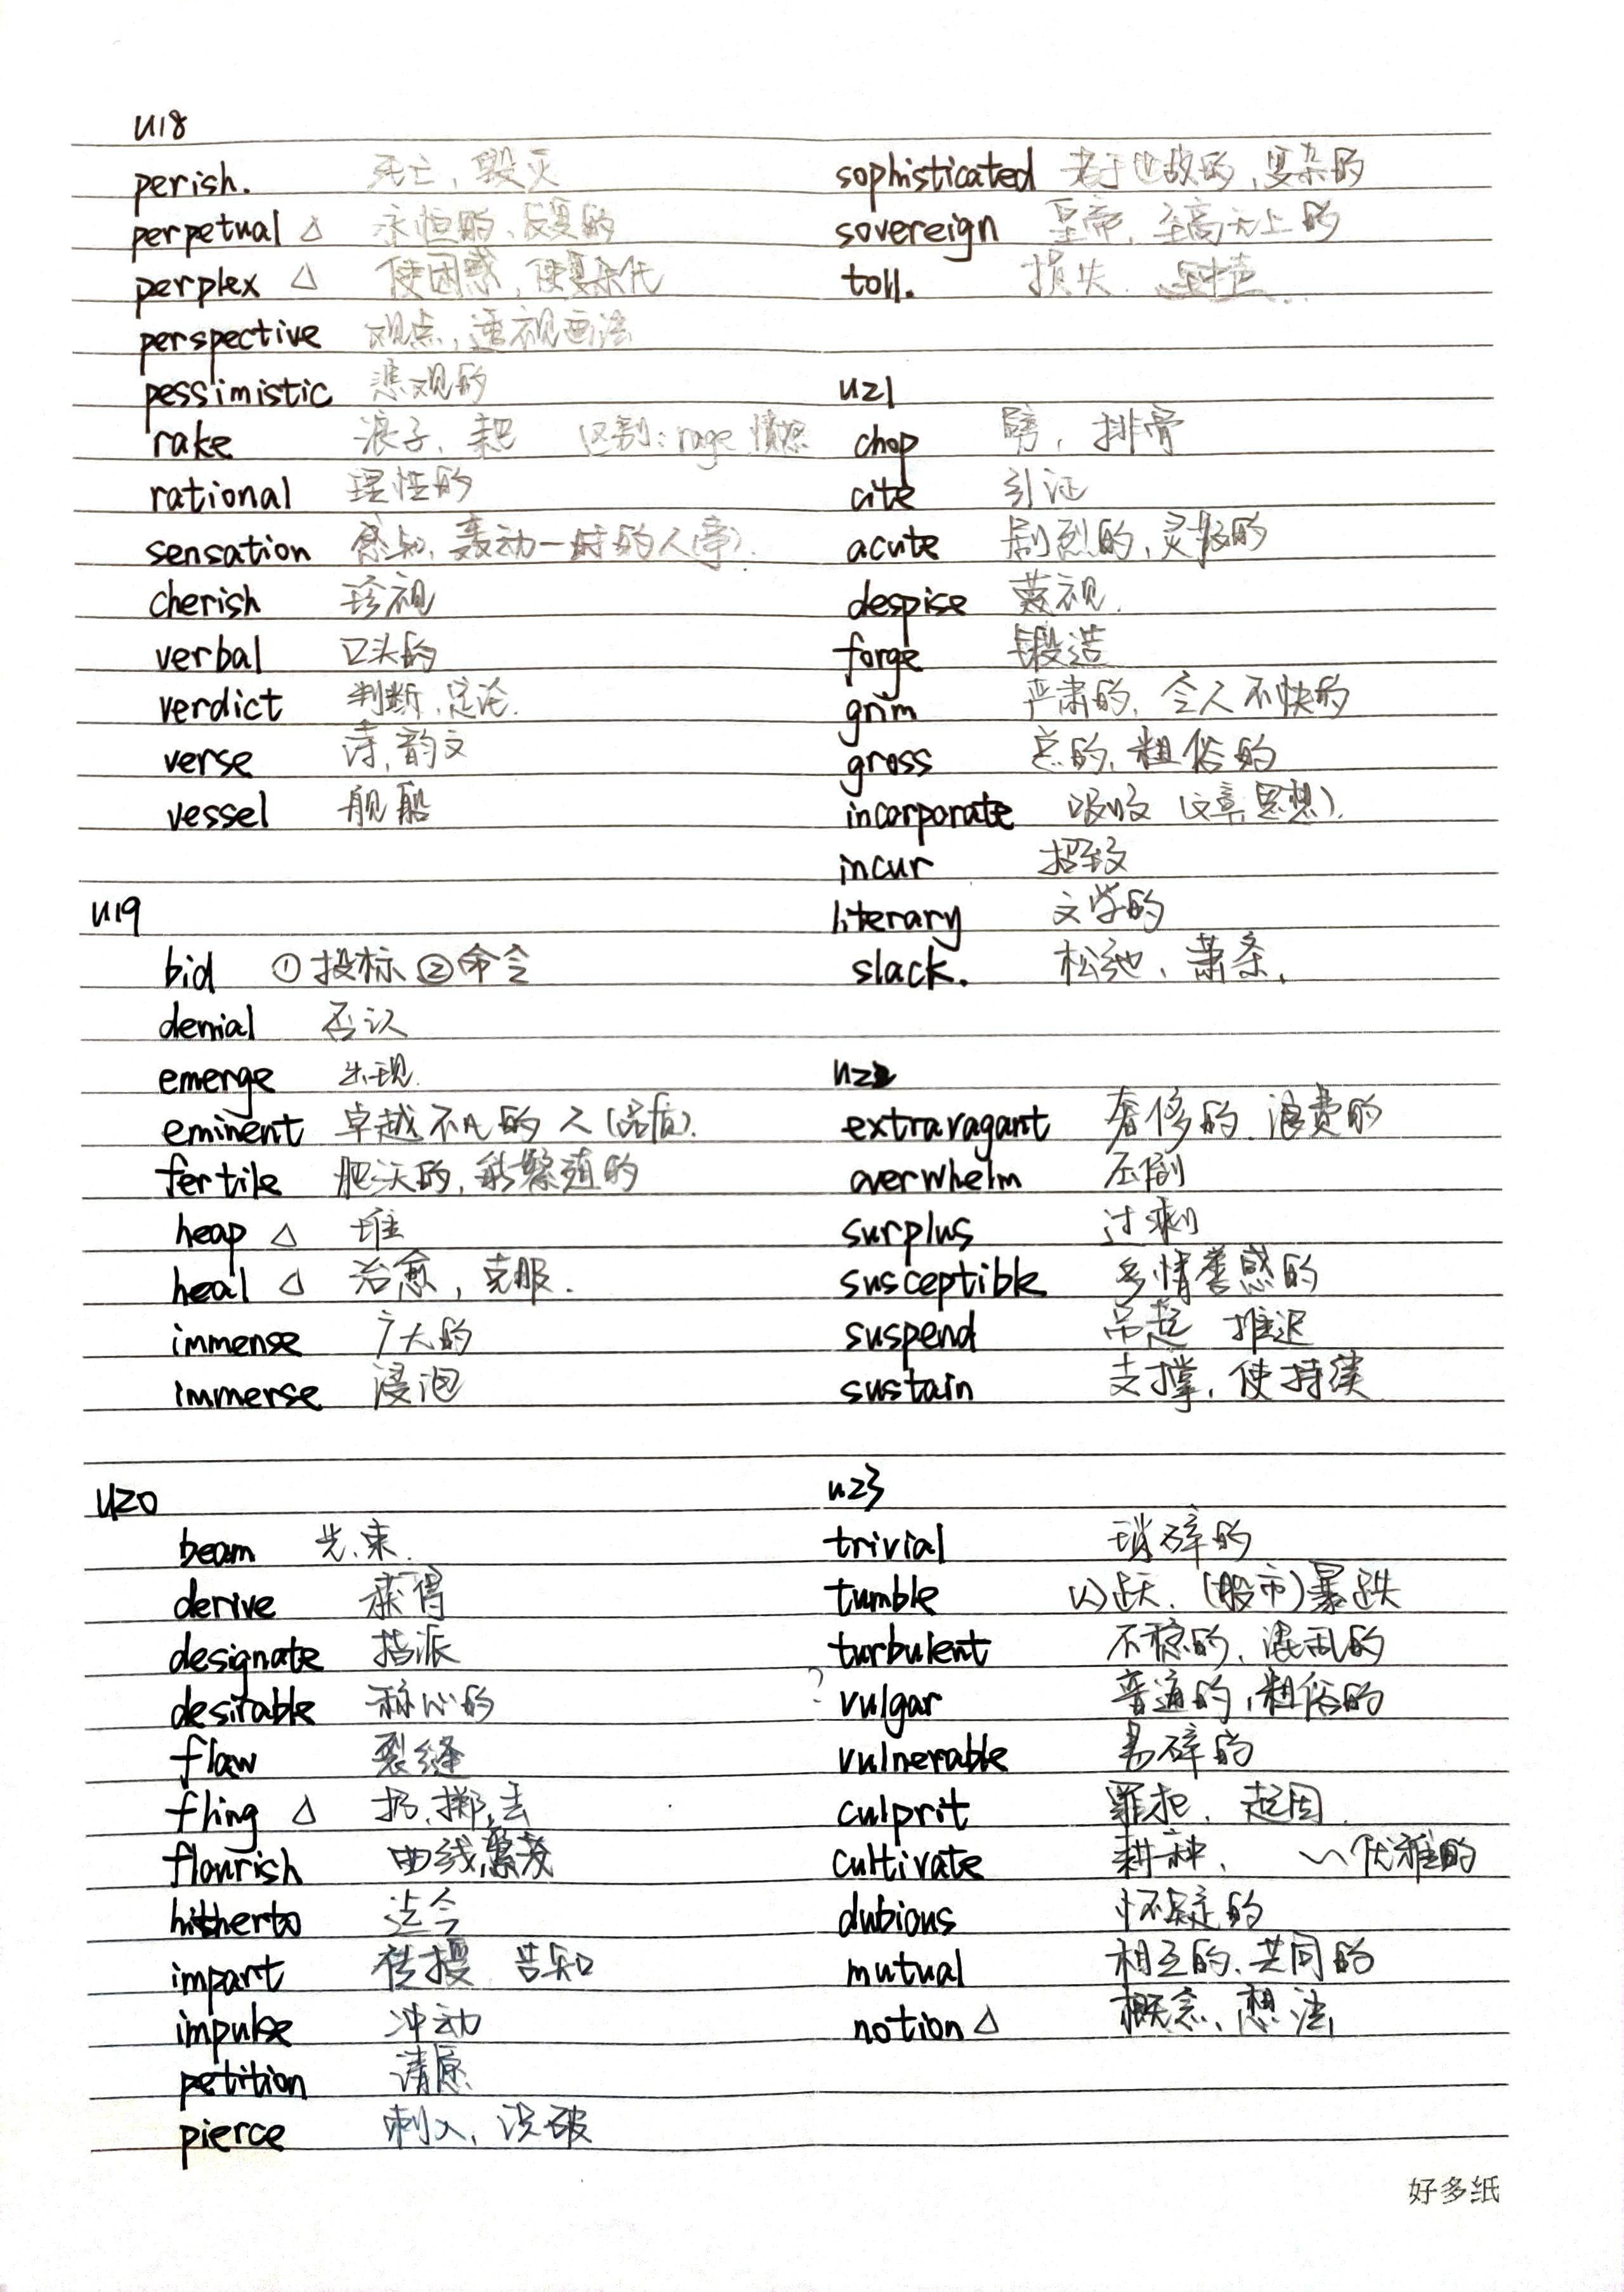 U18
perish. 死亡, 毁灭
perpetual △ 永恒的、反复的
perplex △ 使困惑, 使复杂化
perspective 观点, 透视画法
pessimistic 悲观的
rake 浪子、耙 区别: rage 愤怒
rational 理性的
sensation 感知, 轰动一时的人(事).
cherish 珍视
verbal 口头的
verdict 判断, 定论.
verse 诗, 韵文
vessel 舰船
U19
bid ①投标 ②命令
denial 否认
emerge 出现.
eminent 卓越不凡的 人(品质).
fertile 肥沃的, 能繁殖的
heap △ 堆
heal △ 治愈, 克服.
immense 广大的
immerse 浸泡
U20
beam 光束.
derive 获得
designate 指派
desirable 称心的
flaw 裂缝
fling △ 扔, 掷, 丢
flourish 曲线, 繁茂
hitherto 迄今
impart 传授 告知
impulse 冲动
petition 请愿
pierce 刺入, 识破
sophisticated 老于世故的, 复杂的
sovereign 皇帝, 至高无上的
toll. 损失.
U21
chop 劈, 排骨
cite 引证
acute 剧烈的, 灵敏的
despise 蔑视.
forge 锻造
grim 严肃的, 令人不快的
gross 总的, 粗俗的
incorporate 吸收 (文章思想).
incur 招致
literary 文学的
slack. 松弛、萧条.
U22
extravagant 奢侈的. 浪费的
overwhelm 压倒
surplus 过剩
susceptible 多情善感的
suspend 吊起 推迟
sustain 支撑, 使持续
U23
trivial 琐碎的
tumble (股市)暴跌
turbulent 不稳的, 混乱的
? vulgar 普通的, 粗俗的
vulnerable 易碎的
culprit 罪犯, 起因.
cultivate 耕种, ~优雅的
dubious 怀疑的
mutual 相互的, 共同的
notion △ 概念、想法
好多纸